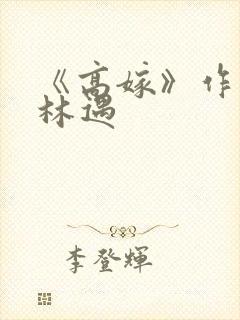 《高嫁》作
林遇
李登輝